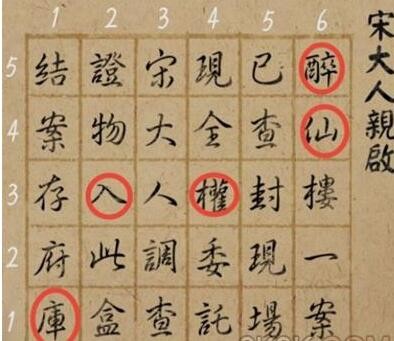 宋大人親啟
1 2 3 4 5 6
5
4
3
2
1
醉仙樓一案
已查封現場
現全權委託
宋大人調查
證物入此盒
結案存府庫